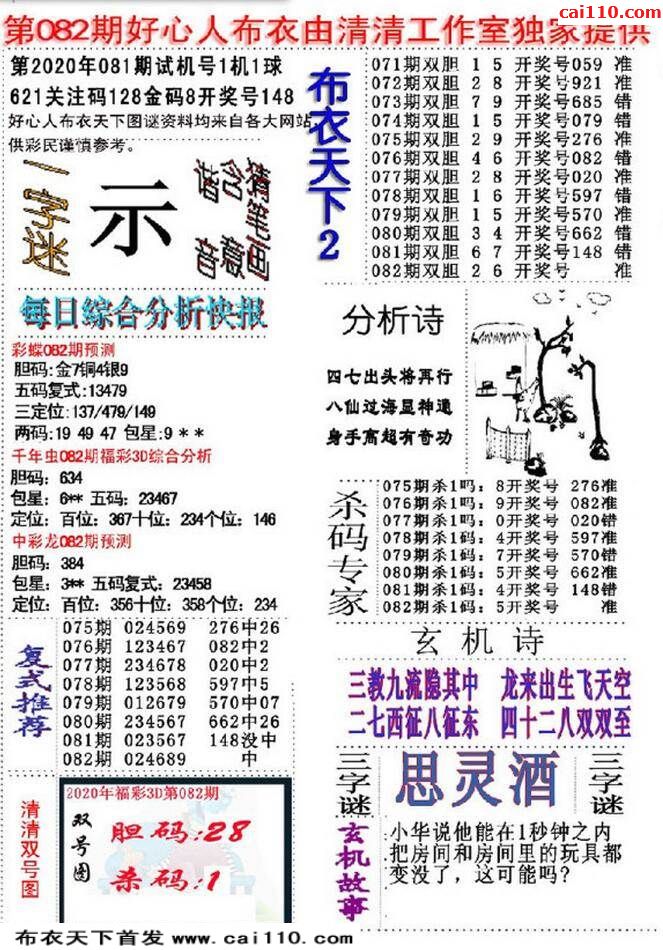 cai110.com
第082期好心人布衣由清清工作室独家提供
第2020年081期试机号1机1球
621关注码128金码8开奖号148
好心人布衣天下图谜资料均来自各大网站
供彩民谨慎参考。
一字迷
示
猜笔画
含意
谐音
每日综合分析快报
彩蝶082期预测
胆码:金7铜4银9
五码复式:13479
三定位:137/479/149
两码:19 49 47 包星:9 * *
千年虫082期福彩3D综合分析
胆码: 634
包星: 6** 五码: 23467
定位: 百位: 367十位: 234个位: 146
中彩龙082期预测
胆码: 384
包星: 3** 五码复式: 23458
定位: 百位: 356十位: 358个位: 234
复式推荐
075期 024569 276中26
076期 123467 082中2
077期 234678 020中2
078期 123568 597中5
079期 012679 570中07
080期 234567 662中26
081期 023567 148没中
082期 024689 中
清清双号图
2020年福彩3D第082期
双号图
胆码:28
杀码:1
布衣天下2
071期双胆 1 5 开奖号059 准
072期双胆 2 8 开奖号921 准
073期双胆 7 9 开奖号685 错
074期双胆 1 5 开奖号079 错
075期双胆 2 9 开奖号276 准
076期双胆 4 6 开奖号082 错
077期双胆 2 8 开奖号020 准
078期双胆 1 6 开奖号597 错
079期双胆 1 5 开奖号570 准
080期双胆 3 4 开奖号662 错
081期双胆 6 7 开奖号148 错
082期双胆 2 6 开奖号 准
分析诗
四七出头将再行
八仙过海显神通
身手高超有奇功
杀码专家
075期杀1吗: 8开奖号 276准
076期杀1吗: 9开奖号 082准
077期杀1吗: 0开奖号 020错
078期杀1码: 4开奖号 597准
079期杀1码: 7开奖号 570错
080期杀1码: 5开奖号 662准
081期杀1码: 4开奖号 148错
082期杀1码: 5开奖号 准
玄机诗
三教九流隐其中 龙来出生飞天空
二七西征八征东 四十二八双双至
三字谜
思灵酒
三字谜
玄机故事
小华说他能在1秒钟之内
把房间和房间里的玩具都
变没了，这可能吗?
布衣天下首发 www.cai110.com